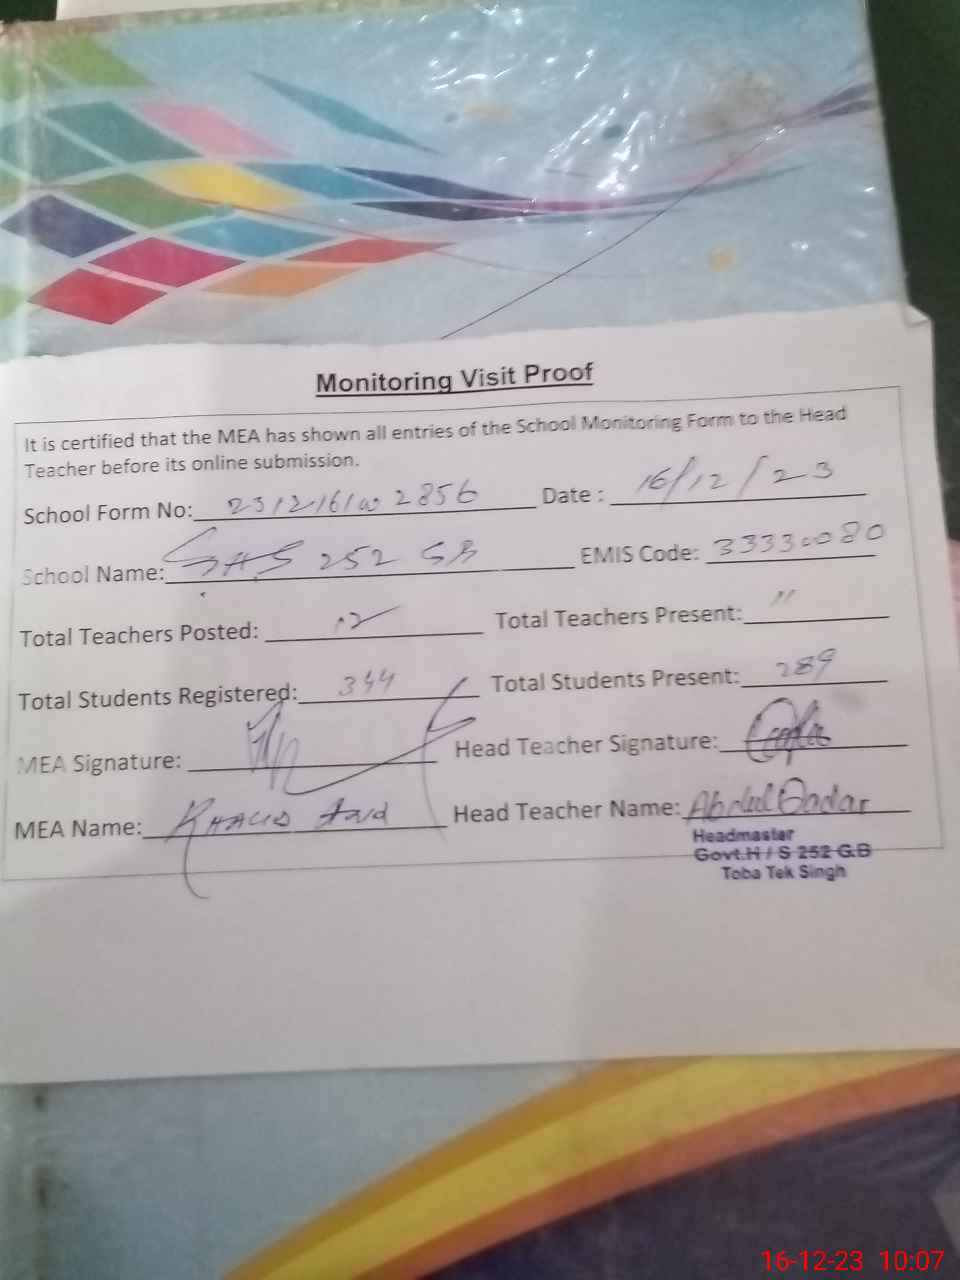 Monitoring Visit Proof
It is certified that the MEA has shown all entries of the School Monitoring Form to the Head
Teacher before its online submission.
School Form No: Date : 16/12/23
School Name: GHS 252 GB EMIS Code: 33330080
Total Teachers Posted: 12 Total Teachers Present: 11
Total Students Registered: 344 Total Students Present: 289
MEA Signature: Head Teacher Signature:
MEA Name: Khalid Head Teacher Name: Abdul Qadar
Headmaster
Govt.H/S 252 G.B
Toba Tek Singh
16-12-23 10:07